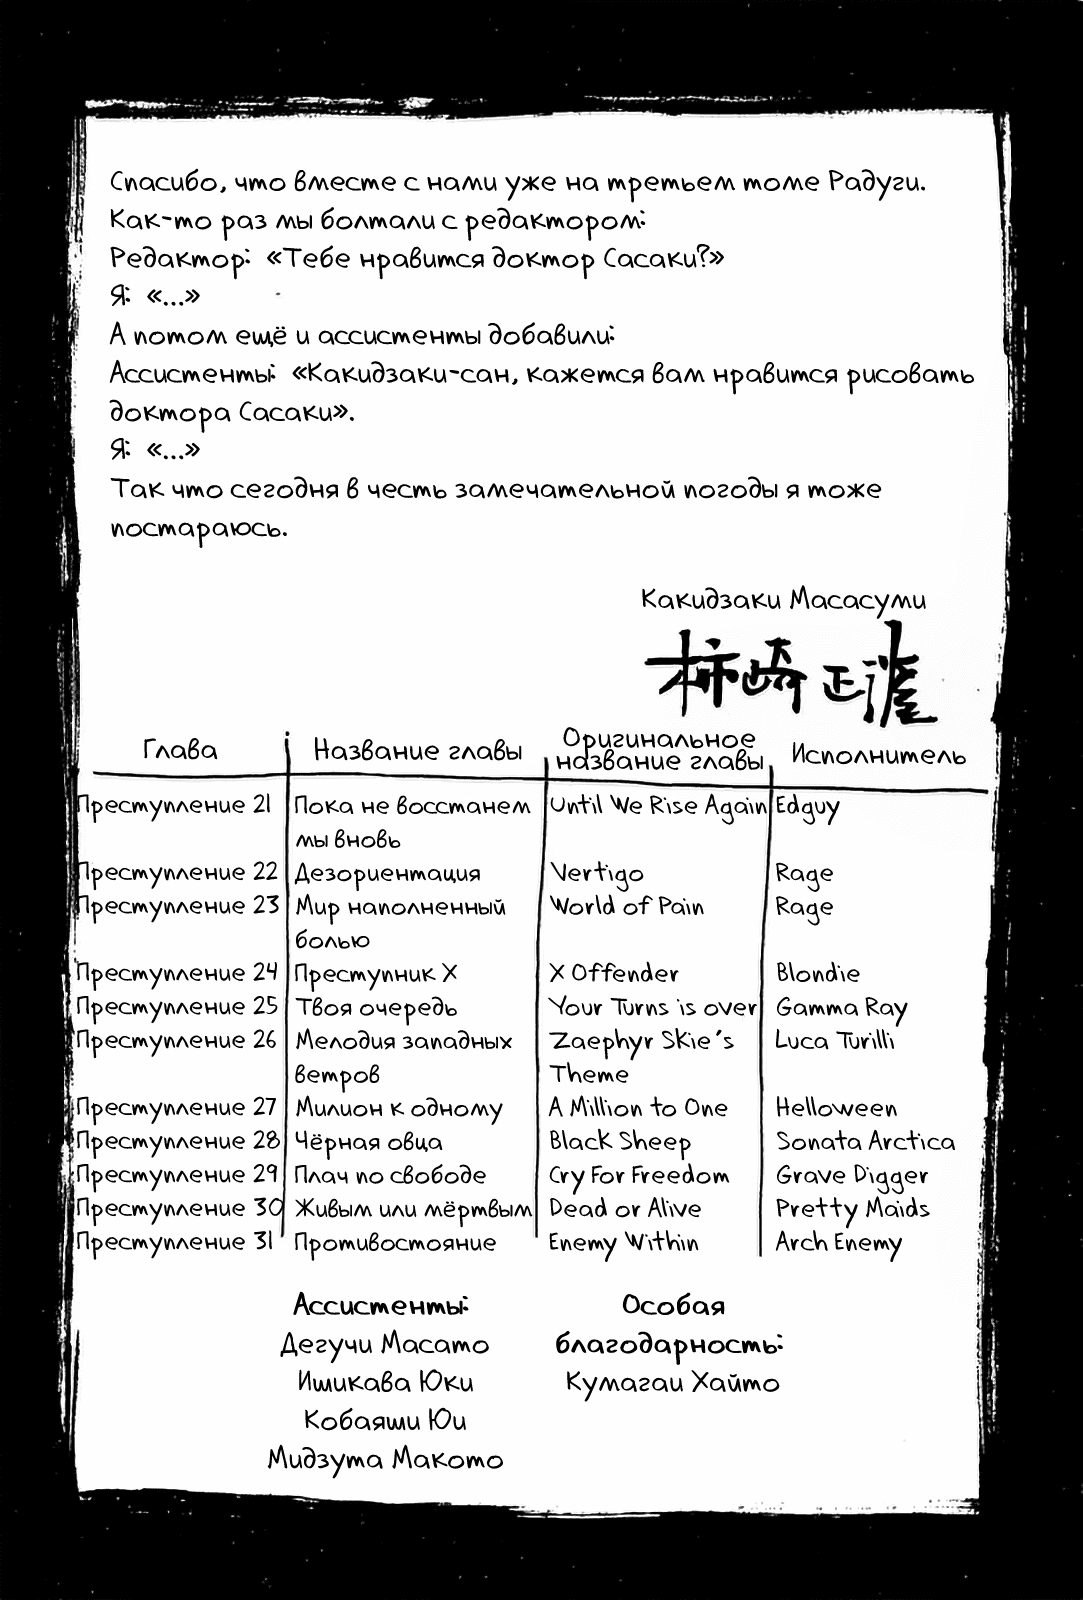 Спасибо, что вместе с нами уже на третьем томе Радуги.
Как-то раз мы болтали с редактором:
Редактор: «Тебе нравится доктор Сасаки?»
Я: «...»
А потом ещё и ассистенты добавили:
Ассистенты: «Какидзаки-сан, кажется вам нравится рисовать
доктора Сасаки».
Я: «...»
Так что сегодня в честь замечательной погоды я тоже
постараюсь.
Какидзаки Масасуми
柿崎 正澄
Глава Название главы Оригинальное название главы Исполнитель
Преступление 21 Пока не восстанем Until We Rise Again Edguy
мы вновь
Преступление 22 Дезориентация Vertigo Rage
Преступление 23 Мир наполненный World of Pain Rage
болью
Преступление 24 Преступник X X Offender Blondie
Преступление 25 Твоя очередь Your Turns is over Gamma Ray
Преступление 26 Мелодия западных Zaephyr Skie's Luca Turilli
ветров Theme
Преступление 27 Милион к одному A Million to One Helloween
Преступление 28 Чёрная овца Black Sheep Sonata Arctica
Преступление 29 Плач по свободе Cry For Freedom Grave Digger
Преступление 30 Живым или мёртвым Dead or Alive Pretty Maids
Преступление 31 Противостояние Enemy Within Arch Enemy
Ассистенты:
Дегучи Масато
Ишикава Юки
Кобаяши Юи
Мидзута Макото
Особая
благодарность:
Кумагаи Хайто